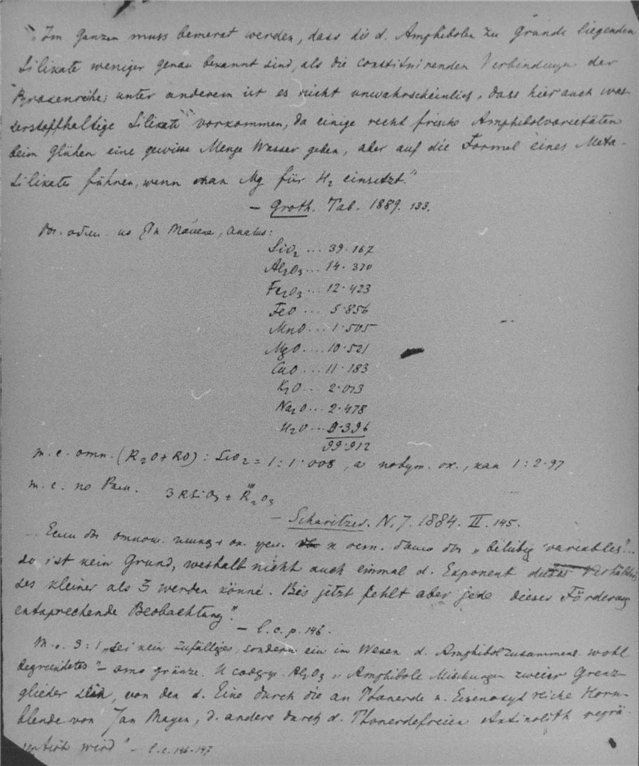 "Im Ganzen muss bemerkt werden, dass die d. Amphibolen zu Grunde liegenden
Silikate weniger genau bekannt sind, als die constituirenden Verbindungen der
unter anderem ist es nicht unwahrscheinlich, dass hier auch was-
serstoffhaltige Silikate vorkommen, da einige recht frische Amphibolvarietäten
beim Glühen eine gewisse Menge Wasser geben, aber auf die Formel eines Meta-
silikats führen, wenn man Mg für H₂ einsetzt."
– Groth. Tab. 1889. 133.
SiO₂ ... 39.167
Al₂O₃ ... 14.370
Fe₂O₃ ... 12.423
FeO ... 5.856
MnO ... 1.505
MgO ... 10.521
CaO ... 11.183
K₂O ... 2.013
Na₂O ... 2.478
H₂O ... 0.396
99.912
(R₂O+RO) : SiO₂ = 1 : 1.008, 1 : 2.97
– Scharitzer. N. J. 1884. II. 145.
"beliebig variables" ...
so ist kein Grund, weshalb nicht auch einmal d. Exponent dieses
des kleiner als 3 werden könne. Bis jetzt fehlt aber jede dieser Förderung
entsprechende Beobachtung".
– l. c. p. 146.
3 : 1 "sei kein zufälliges, sondern ein im Wesen d. Amphibolzusammens. wohl
begründetes" – Al₂O₃ "Amphibole Mischungen zweier Grenz-
glieder von den d. Eine durch die an Thonerde u. Eisenoxyd reiche Horn-
blende von Jan Mayen, d. andere durch d. Thonerdefreien Actinolith reprä-
wird" – l. c. 146-147